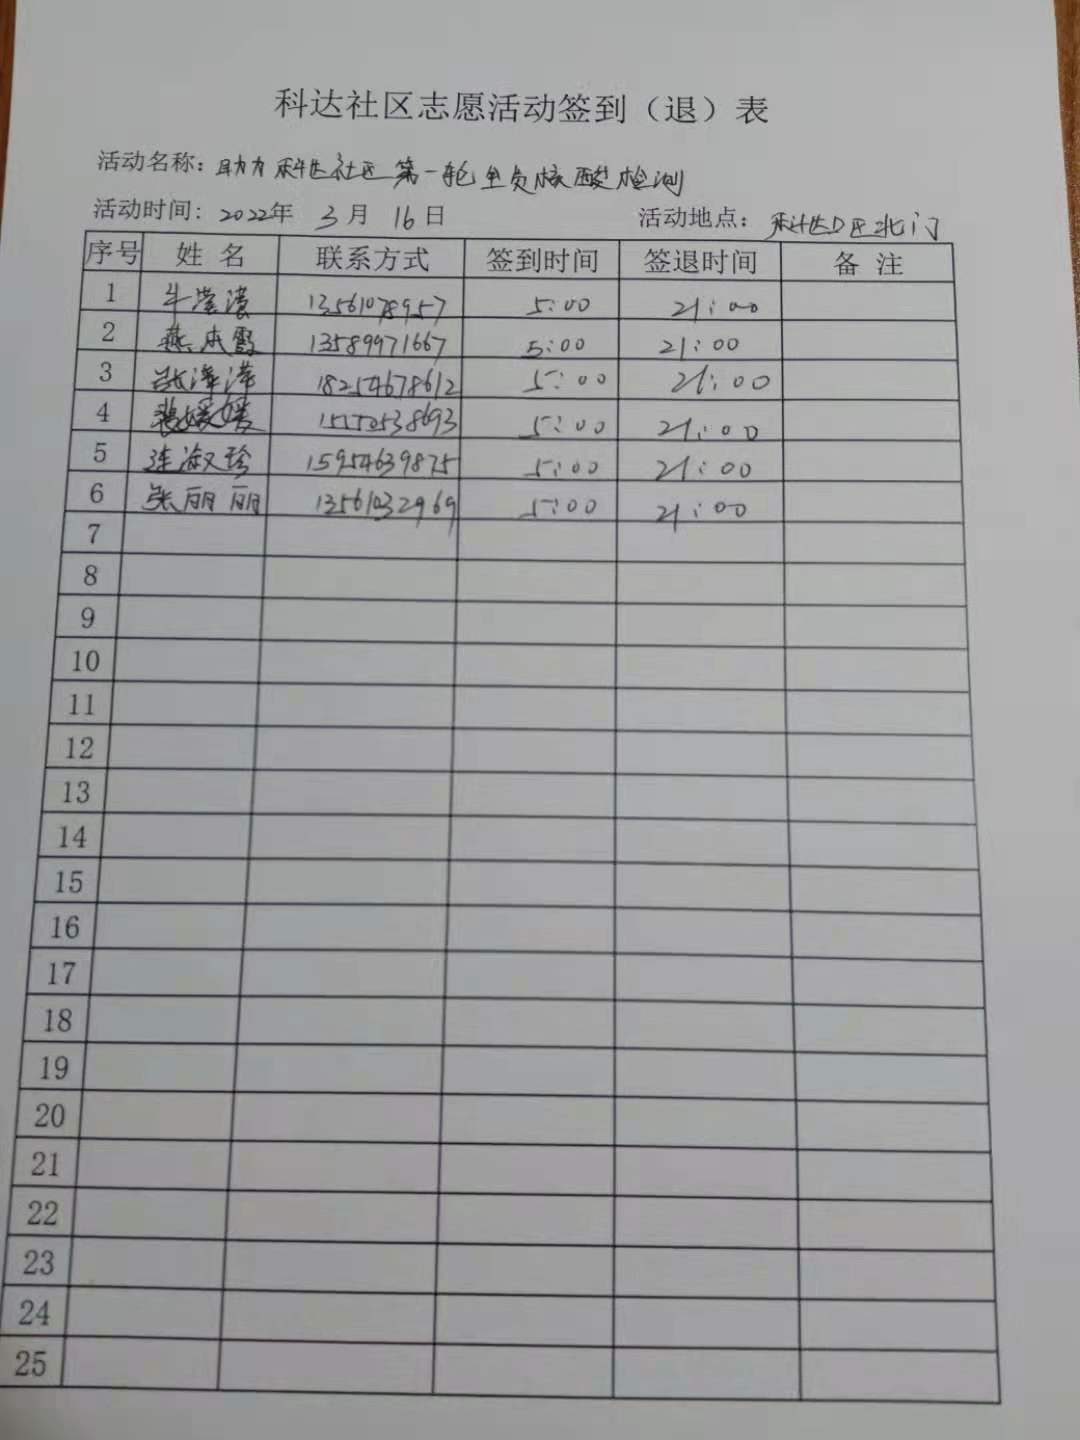 科达社区志愿活动签到（退）表
活动名称：助力科达社区第一轮全员核酸检测
活动时间：2022年 3月 16日 活动地点：科达D区北门
序号 姓 名 联系方式 签到时间 签退时间 备 注
1 牛滢滢 13561078957 5:00 21:00
2 燕杰霞 13589971667 5:00 21:00
3 张泽泽 18254678612 5:00 21:00
4 裴媛媛 5:00 21:00
5 连淑珍 15954639875 5:00 21:00
6 张丽丽 13561032969 5:00 21:00
7
8
9
10
11
12
13
14
15
16
17
18
19
20
21
22
23
24
25